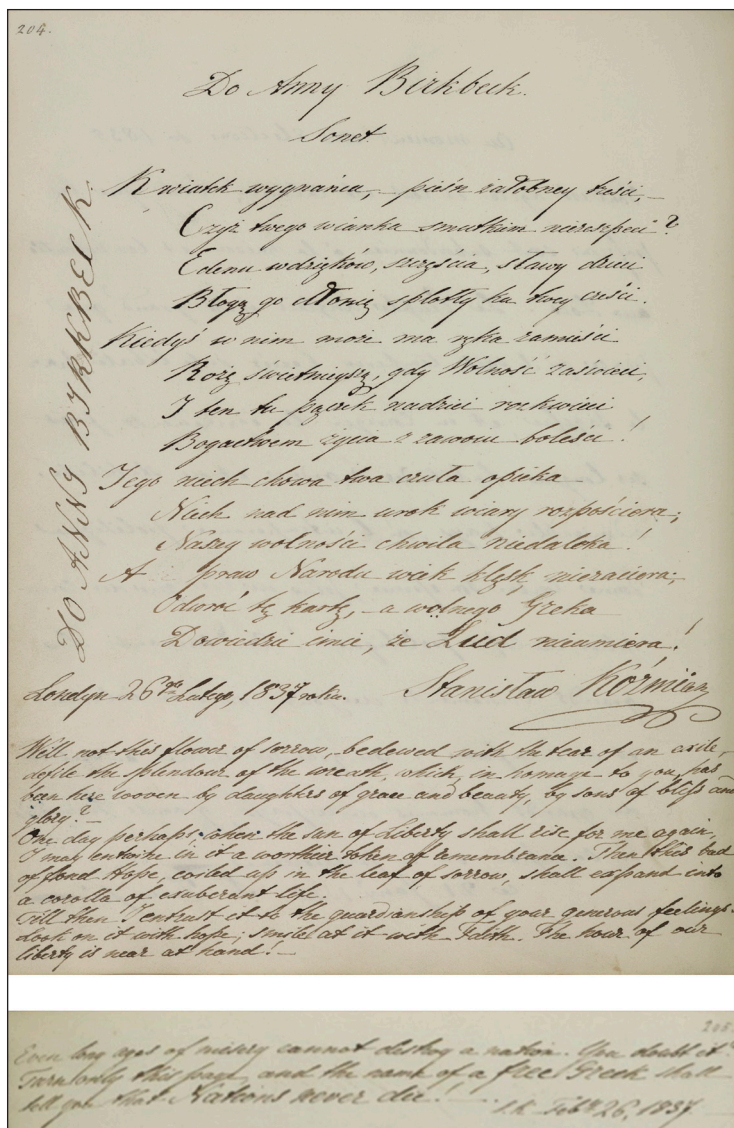 204.
Do Anny Birkbeck.
Sonet.
DO ANNY BIRKBECK.
Kwiatek wygnańca, – pieśń żałobney treści, –
Czyż twego wianka smutkiem niezeszpeci?
Edenu wdzięków, szczęścia, sławy dzieci
Błogą go dłonią splotły ku twey cześci.
Kiedyś w nim może ma ręka zamieści
Różę świetnieyszą, gdy Wolność zaświeci,
I ten tu pączek nadziei rozkwieci
Bogactwem życia z zawoiu boleści!
Jego niech chowa twa czuła opieka
Niech nad nim urok wiary rozpościera;
Naszey wolności chwila niedaleka!
A praw Narodu wiek klęsk niezaciera;
Odwróć tę kartę, – a wolnego Greka
Dowiedzie imie, że Lud nieumiera!
Londyn 26go Lutego, 1837 roku. Stanisław Koźmian
Will not this flower of sorrow, bedewed with the tear of an exile,
defile the splendour of the wreath, which, in homage to you, has
been here woven by daughters of grace and beauty, by sons of bliss and
glory?
One day perhaps, when the sun of Liberty shall rise for me again,
I may entwine in it a worthier token of remembrance. Then this bud
of fond Hope, coiled up in the leaf of sorrow, shall expand into
a corolla of exuberant life.
Till then I entrust it to the guardianship of your generous feelings.
Look on it with hope; smile at it with Faith. The hour of our
liberty is near at hand! –
205.
Even long ages of misery cannot destroy a nation. You doubt it?
Turn only this page, and the name of a free Greek shall
tell you that Nations never die! –
S.K. Feby 26, 1837.